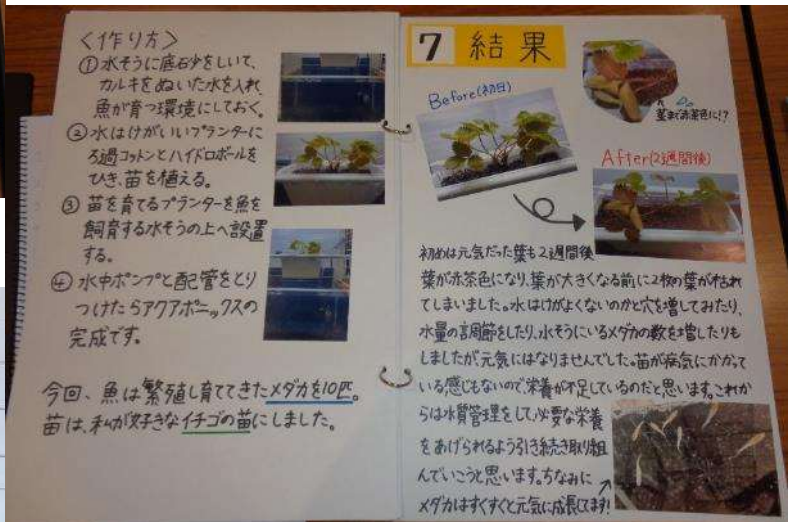 ＜作り方＞
① 水そうに底砂をしいて、
カルキをぬいた水を入れ、
魚が育つ環境にしておく。
② 水はけがいいプランターに
ろ過コットンとハイドロボールを
ひき、苗を植える。
③ 苗を育てるプランターを魚を
飼育する水そうの上へ設置
する。
④ 水中ポンプと配管をとり
つけたらアクアポニックスの
完成です。
今回、魚は繁殖し育ててきたメダカを10匹。
苗は、私が好きなイチゴの苗にしました。
7 結果
Before(初日)
茎まで赤茶色に!?
After(2週間後)
初めは元気だった葉も2週間後
葉が赤茶色になり、葉が大きくなる前に2枚の葉が枯れ
てしまいました。水はけがよくないのかと穴を増してみたり、
水量の調節をしたり、水そうにいるメダカの数を増したりも
しましたが、元気にはなりませんでした。苗が病気にかかって
いる感じもないので栄養が不足しているのだと思います。これか
らは水質管理をして、必要な栄養
をあげられるよう引き続き取り組
んでいこうと思います。ちなみに
メダカはすくすくと元気に成長してます!